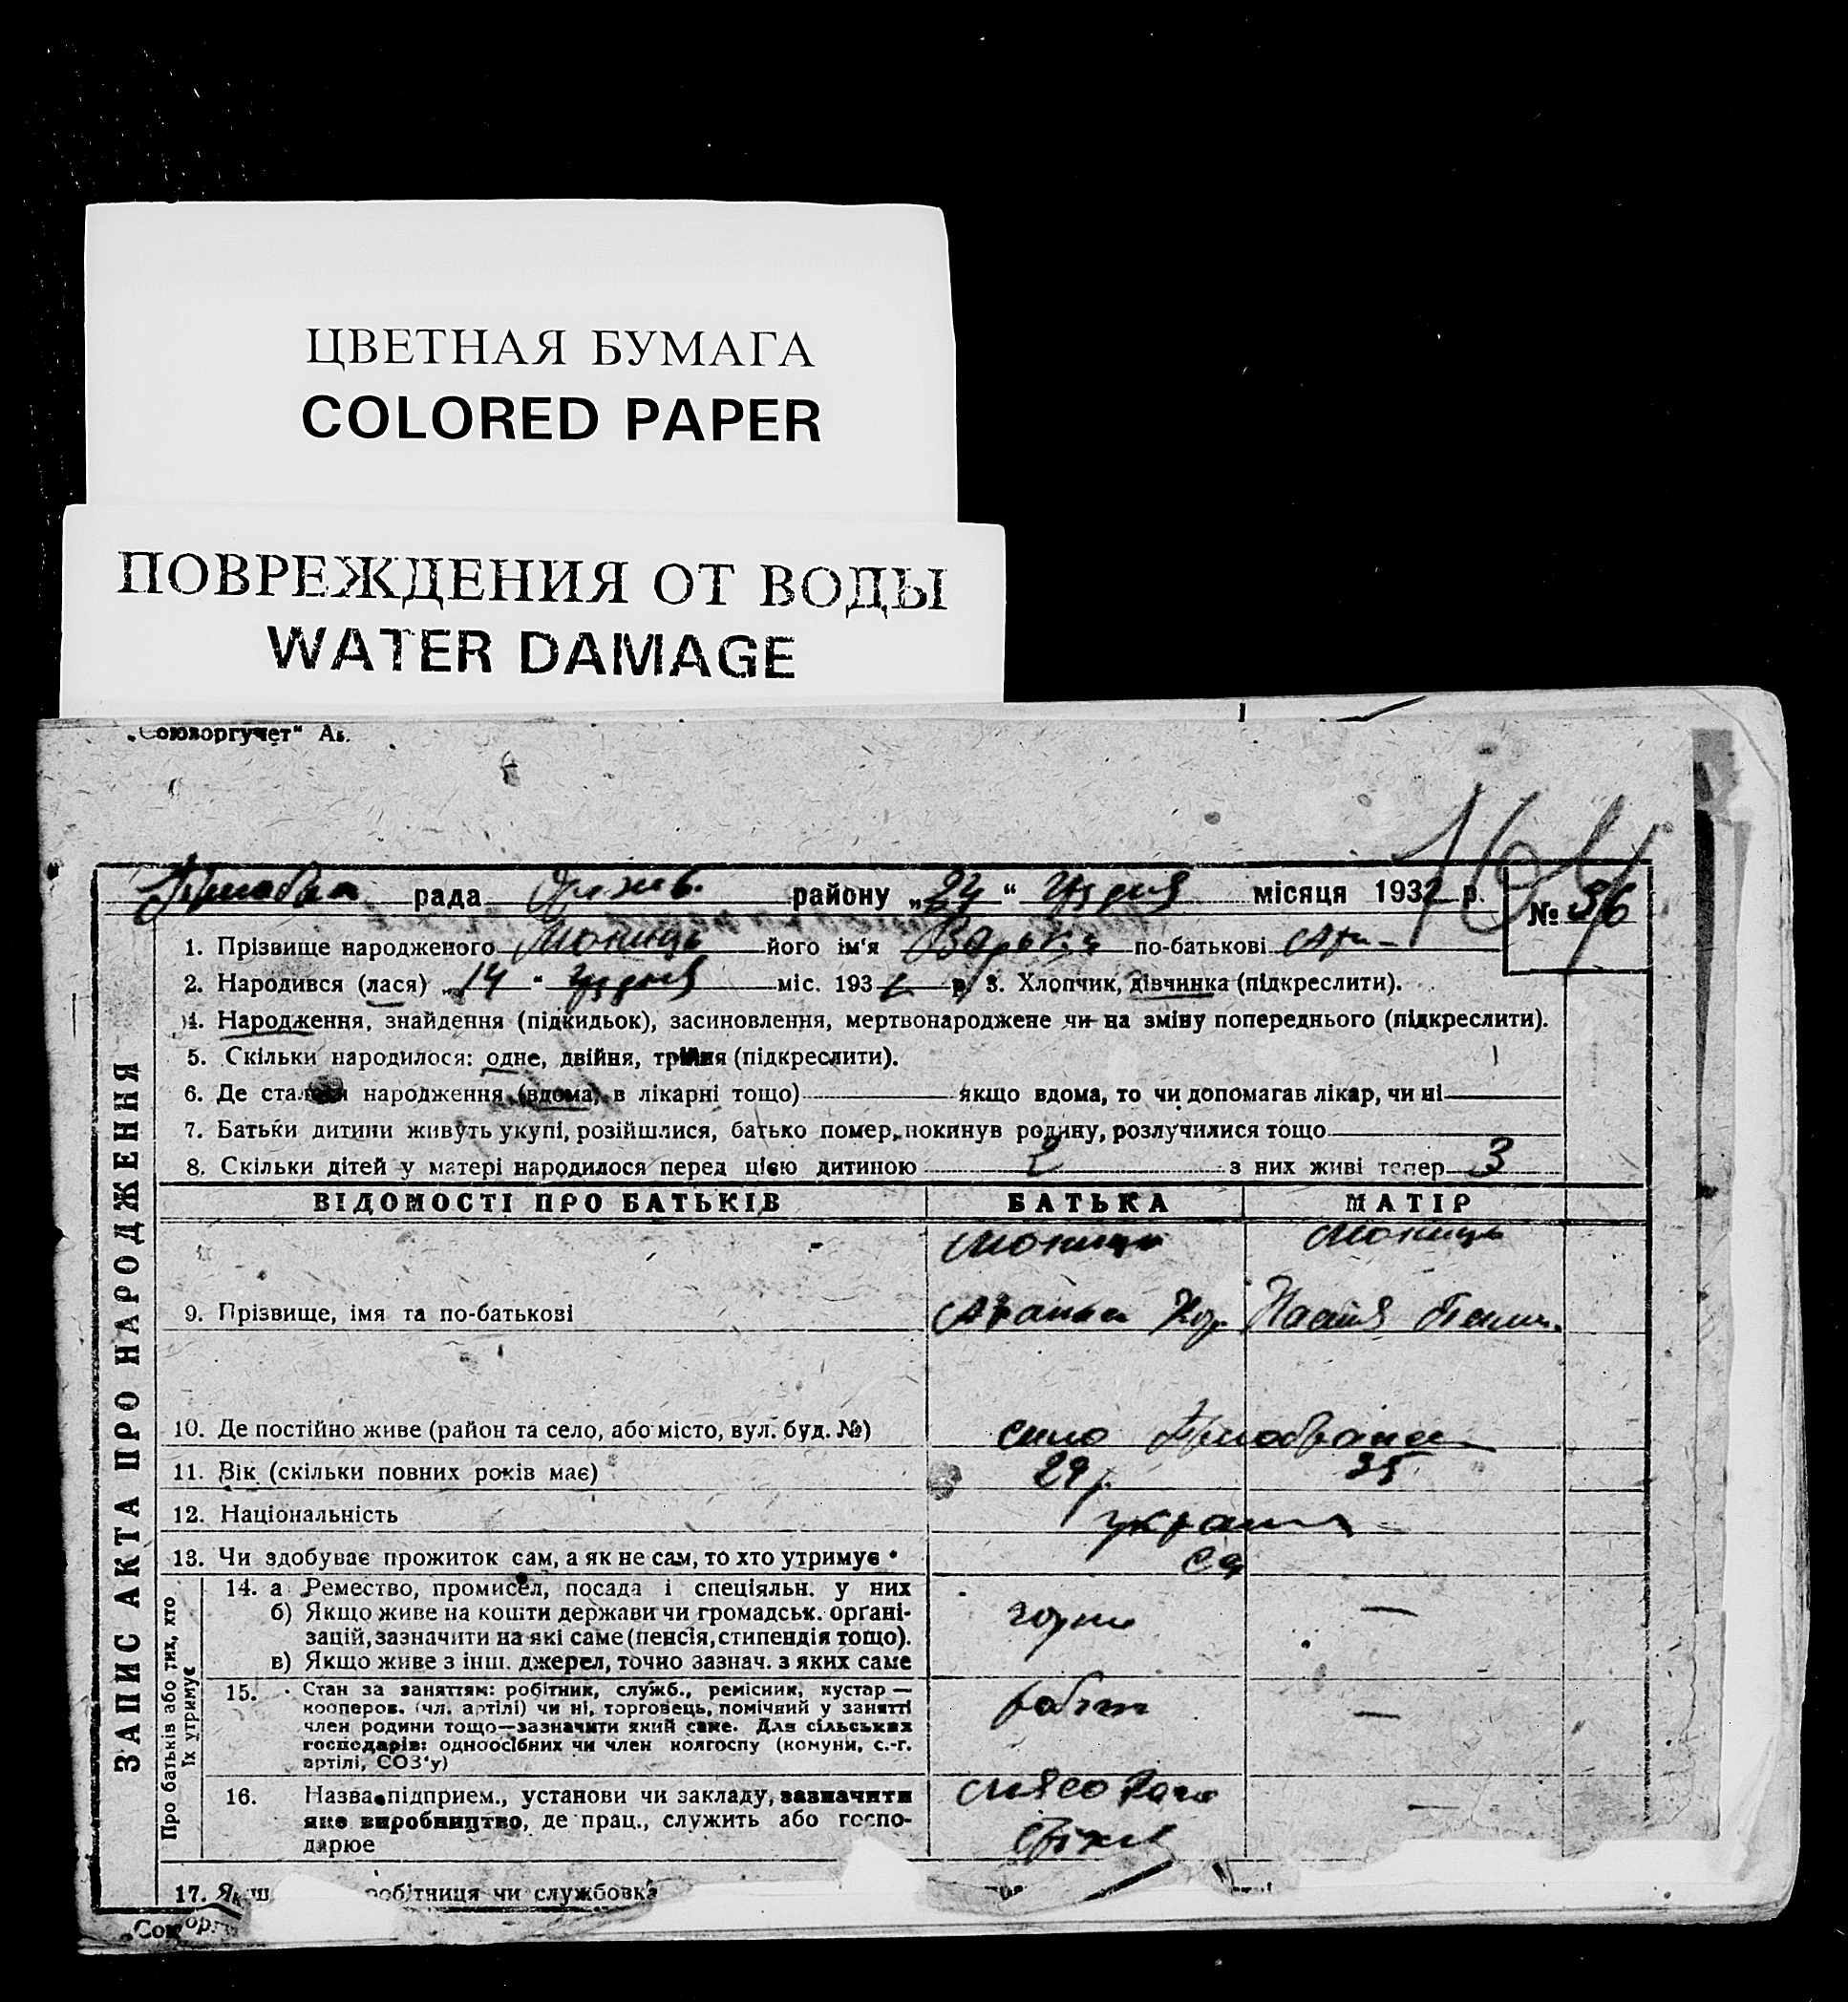 ЦВЕТНАЯ БУМАГА
COLORED PAPER
ПОВРЕЖДЕНИЯ ОТ ВОДЫ
WATER DAMAGE
„Союзоргучет“
рада району „24“ грудня місяця 1932 р. № 36
1. Прізвище народженого Мокиць його ім‘я Варька по-батькові
2. Народився (лася) „14“ грудня міс. 1932 р. 3. Хлопчик, дівчинка (підкреслити).
4. Народження, знайдення (підкидьок), засиновлення, мертвонароджене чи на зміну попереднього (підкреслити).
5. Скільки народилося: одне, двійня, трійня (підкреслити).
6. Де сталося народження (вдома, в лікарні тощо) якщо вдома, то чи допомагав лікар, чи ні
7. Батьки дитини живуть укупі, розійшлися, батько помер, покинув родину, розлучилися тощо
8. Скільки дітей у матері народилося перед цією дитиною 2 з них живі тепер 3
ЗАПИС АКТА ПРО НАРОДЖЕННЯ
ВІДОМОСТІ ПРО БАТЬКІВ БАТЬКА МАТІР
Мокиць Мокиць
9. Прізвище, імя та по-батькові
10. Де постійно живе (район та село, або місто, вул. буд. №) село
11. Вік (скільки повних років має) 29 р. 35
12. Національність україн
13. Чи здобуває прожиток сам, а як не сам, то хто утримує
Про батьків або тих, хто
їх утримує
14. а Ремество, промисел, посада і спеціяльн. у них
б) Якщо живе на кошти держави чи громадськ. орґані-
зацій, зазначити на які саме (пенсія, стипендія тощо).
в) Якщо живе з інш. джерел, точно зазнач. з яких саме
15. Стан за заняттям: робітник, служб., ремісник, кустар —
кооперов. (чл. артілі) чи ні, торговець, помічний у занятті
член родини тощо—зазначити який саме. Для сільських
господарів: одноосібних чи член колгоспу (комуни, с.-г.
артілі, СОЗ‘у)
робіт
16. Назва підприєм., установи чи закладу, зазначити
яке виробництво, де прац., служить або госпо-
дарює
17. робітниця чи службовка